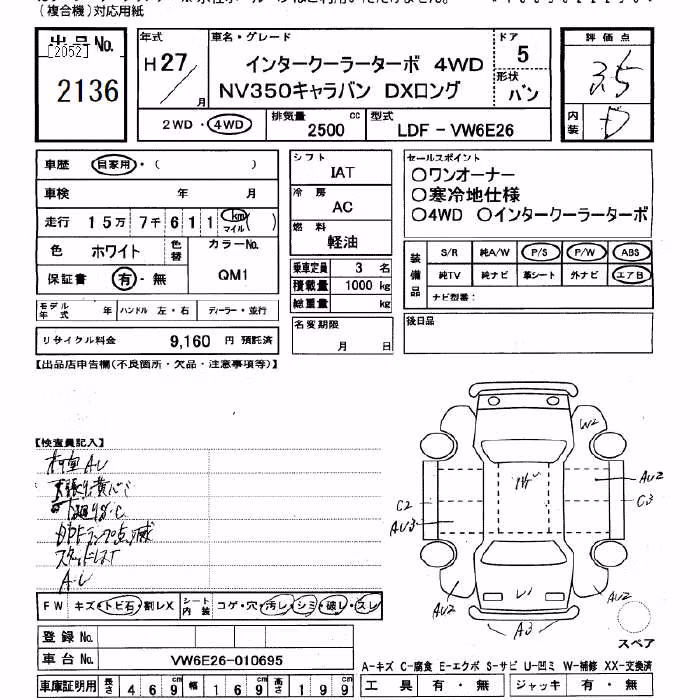 (複合機)対応用紙
出品No.
[2052]
2136
年式
H27/月
車名・グレード
インタークーラーターボ 4WD
NV350キャラバン DXロング
ドア
5
形状
バン
評価点
3.5
内装
D
2WD・4WD
排気量 2500 cc
型式 LDF-VW6E26
車歴 自家用・( )
車検 年 月
走行 15万 7千 6 1 1 km マイル ( )
色 ホワイト 色替
カラーNo. QM1
保証書 有・無
モデル年式 年 ハンドル 左・右 ディーラー・並行
リサイクル料金 9,160 円 預託済
シフト
IAT
冷房
AC
燃料
軽油
乗車定員 3 名
積載量 1000 kg
総重量 kg
名変期限
月 日
セールスポイント
○ワンオーナー
○寒冷地仕様
○4WD ○インタークーラーターボ
装備品
S/R 純A/W P/S P/W ABS
純TV 純ナビ 革シート 外ナビ エアB
ナビ型番:
後日品
【出品店申告欄(不良箇所・欠品・注意事項等)】
【検査員記入】
DPFランプ点滅
A-U
FW キズ・トビ石・割レX シート内装 コゲ・穴・汚レ・シミ・破レ・スレ
登録No.
車台No. VW6E26-010695
車庫証明用 長さ 4 6 9 cm 幅 1 6 9 cm 高さ 1 9 9 cm
W2
AU2
C2
C3
AU3
AU2
U1
AU2
A3
スペア
A-キズ C-腐食 E-エクボ S-サビ U-凹ミ W-補修 XX-交換済
工具 有・無 ジャッキ 有・無